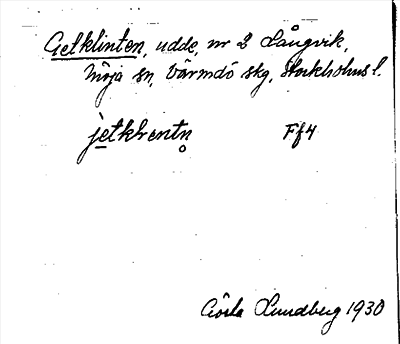 Getklinten, udde, nr 2 Långvik,
Möja sn, Värmdö skg, Stockholms l.
jetklentn̥ Ff4
Gösta Lundberg 1930